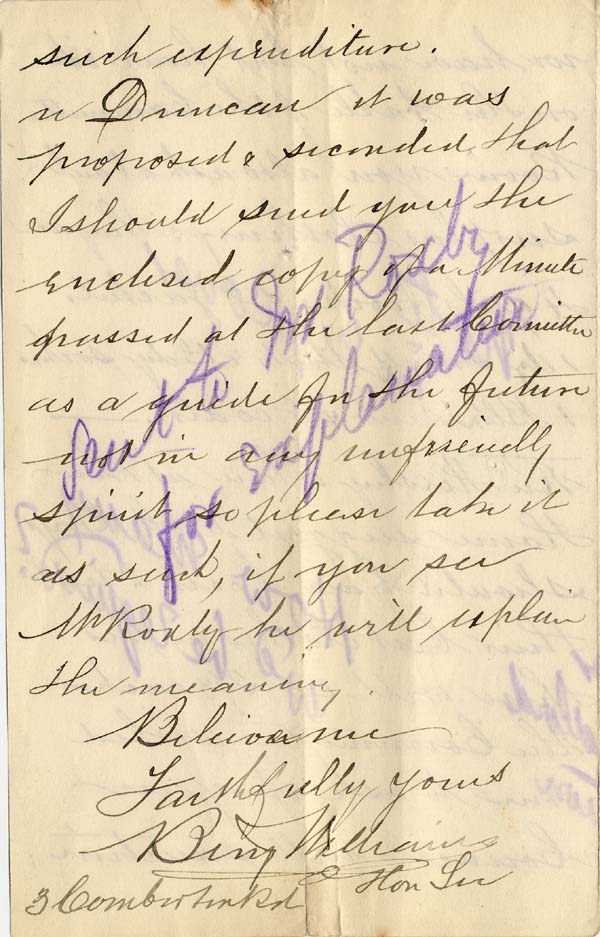 such expenditure.
n Duncan it was
proposed & seconded that
I should send you the
enclosed copy of a Minute
passed at the last Comittee
as a guide for the future
not in any unfriendly
spirit so please take it
as such, if you see
Mr Roxby he will explain
the meaning.
Believe me
Faithfully yours
Benj Williams
Hon Sec
3 Comberton Rd
Sent to Mr Roxby
for explanation